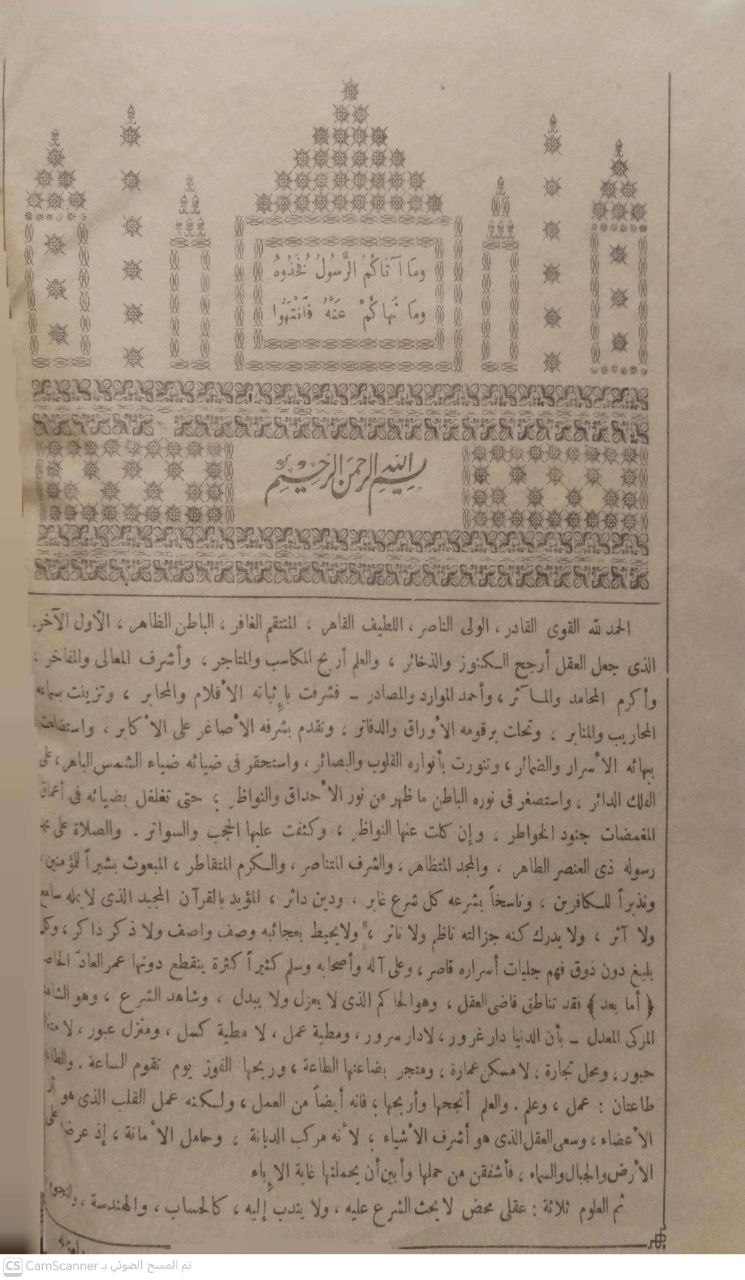 وما آتَاكُمُ الرَّسُولُ فَخُذُوهُ
وما نَهاكُمْ عَنْهُ فَانْتَهُوا
بسم الله الرحمن الرحيم
الحمد لله القوى القادر، الولى الناصر، اللطيف القاهر، المنتقم الغافر، الباطن الظاهر، الأول الآخر.
الذى جعل العقل أرجح الكنوز والذخائر، والعلم أربح المكاسب والمتاجر، وأشرف المعالى والمفاخر،
وأكرم المحامد والمآثر، وأحمد الموارد والمصادر ــ فشرفت بإثباته الأقلام والمحابر، وتزينت بسماعه
المحاريب والمنابر، وتحلت برقومه الأوراق والدفاتر، وتقدم بشرفه الأصاغر على الأكابر، واستضاءت
ببهائه الأسرار والضمائر، وتنورت بأنواره القلوب والبصائر، واستحقر فى ضيائه ضياء الشمس الباهر، على
الفلك الدائر، واستصغر فى نوره الباطن ما ظهر من نور الأحداق والنواظر، حتى تغلغل بضيائه فى أعماق
المغمضات جنود الخواطر، وإن كلت عنها النواظر، وكثفت عليها الحجب والسواتر. والصلاة على
رسوله ذى العنصر الطاهر، والمجد المتظاهر، والشرف المتناصر، والكرم المتقاطر، المبعوث بشيراً للمؤمنين،
ونذيراً للكافرين، وناسخاً بشرعه كل شرع غابر، ودين داثر، المؤيد بالقرآن المجيد الذى لا يمله سامع
ولا آثر، ولا يدرك كنه جزالته ناظم ولا ناثر، ولا يحيط بعجائبه وصف واصف ولا ذكر ذاكر، وكل
بليغ دون ذوق فهم جليات أسراره قاصر، وعلى آله وأصحابه وسلم كثيراً كثرة ينقطع دونها عمر العادّ الحاصر
﴿ أما بعد ﴾ فقد تناطق قاضى العقل، وهو الحاكم الذى لا يعزل ولا يبدل، وشاهد الشرع، وهو الشاهد
المزكى المعدل ــ بأن الدنيا دار غرور، لا دار سرور، ومطية عمل، لا مطية كسل، ومنزل عبور، لا متنزه
حبور، ومحل تجارة، لا مسكن عمارة، ومتجر بضاعتها الطاعة، وربحها الفوز يوم تقوم الساعة. والطاعة
طاعتان: عمل، وعلم. والعلم أنجحها وأربحها، فانه أيضاً من العمل، ولكنه عمل القلب الذى هو أعز
الأعضاء، وسعى العقل الذى هو أشرف الأشياء، لأنه مركب الديانة، وحامل الأمانة، إذ عرضت على
الأرض والجبال والسماء، فأشفقن من حملها وأبين أن يحملنها غاية الإباء
ثم العلوم ثلاثة: عقلى محض لا يحث الشرع عليه، ولا يندب إليه، كالحساب، والهندسة، والنجوم
تم المسح الضوئي بـ CamScanner
CS